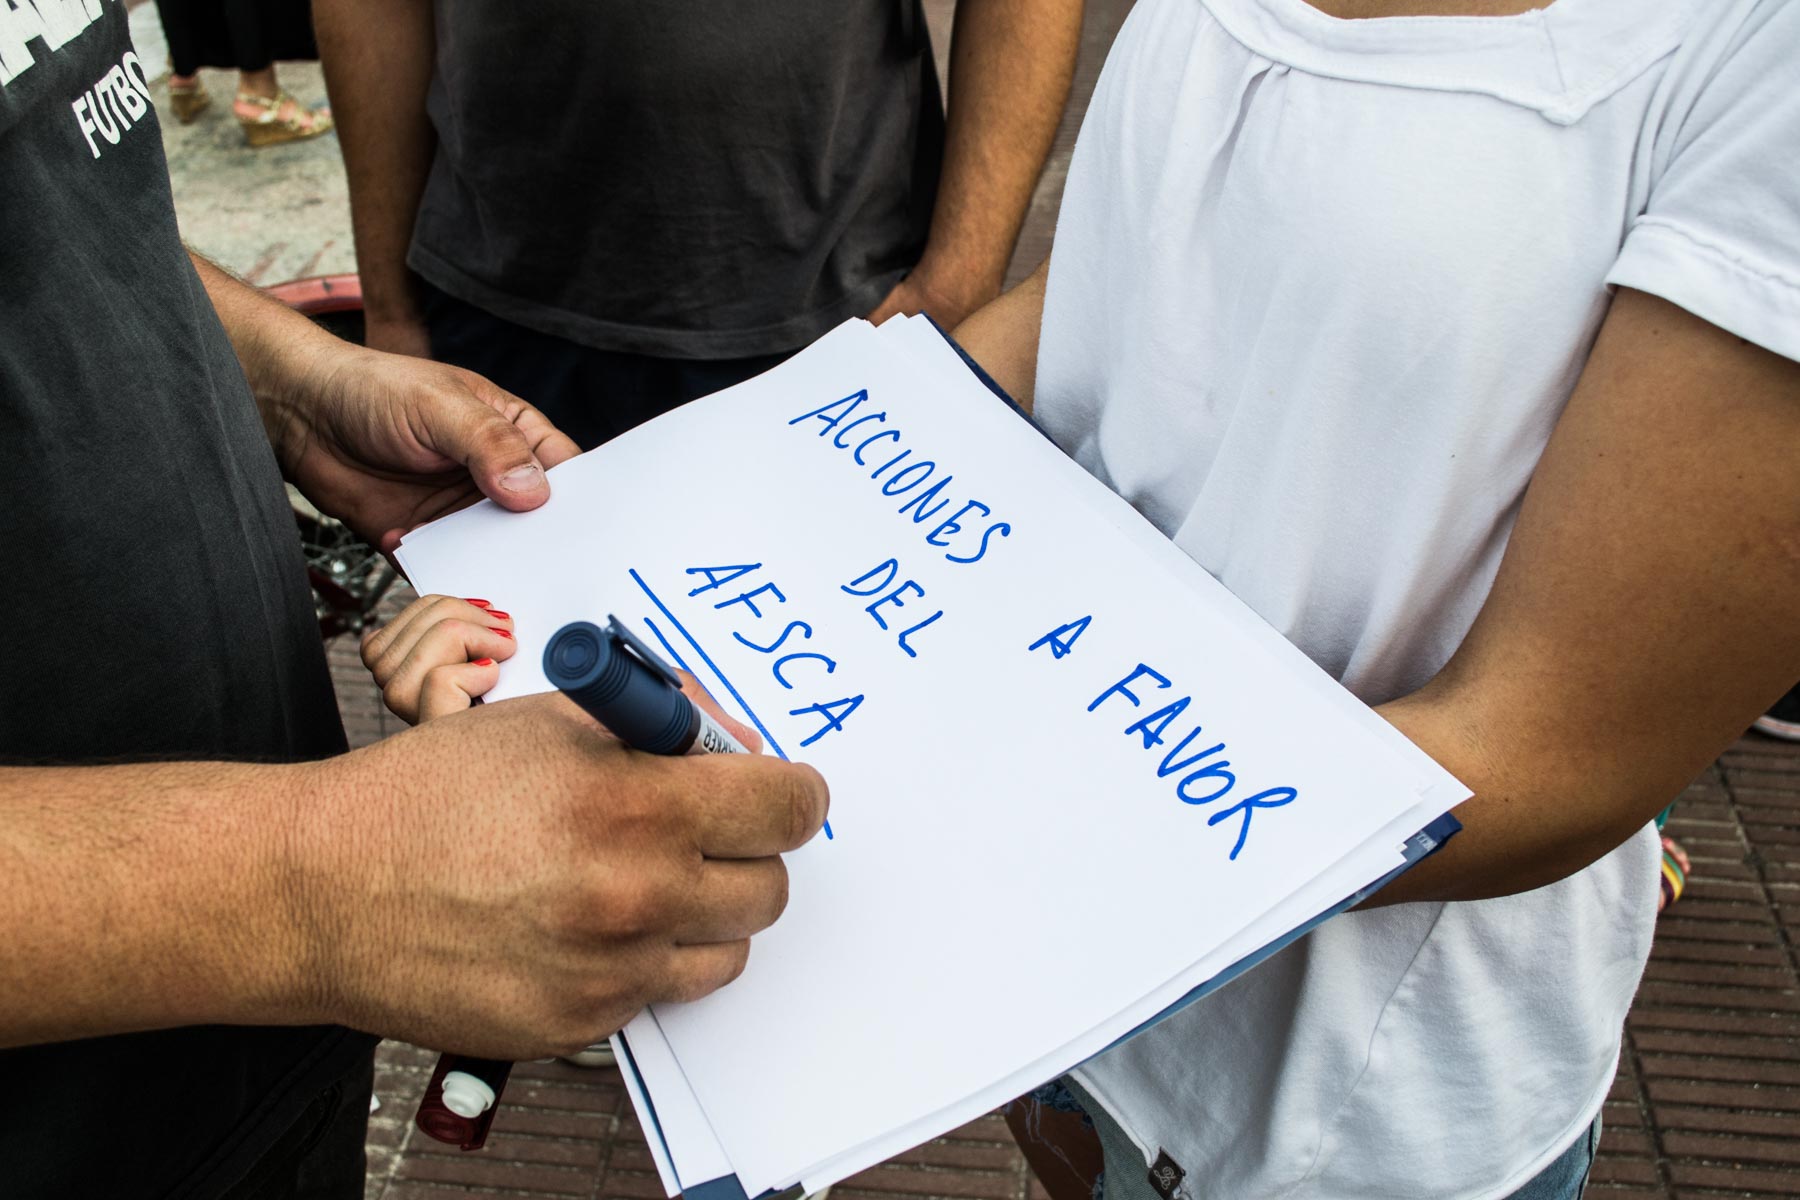 ACCIONES A FAVOR
DEL
AFSCA
FUTBO